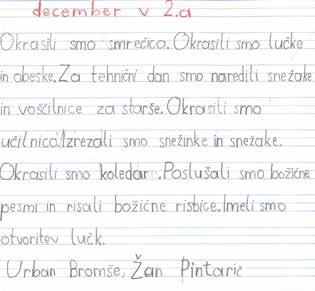 december v 2.a
Okrasili smo smrečico. Okrasili smo lučke
in obeske. Za tehnični dan smo naredili snežake
in voščilnice za starše. Okrasili smo
učilnico. Izrezali smo snežinke in snežake.
Okrasili smo koledar. Poslušali smo božične
pesmi in risali božične risbice. Imeli smo
otvoritev lučk.
Urban Bromše, Žan Pintarič